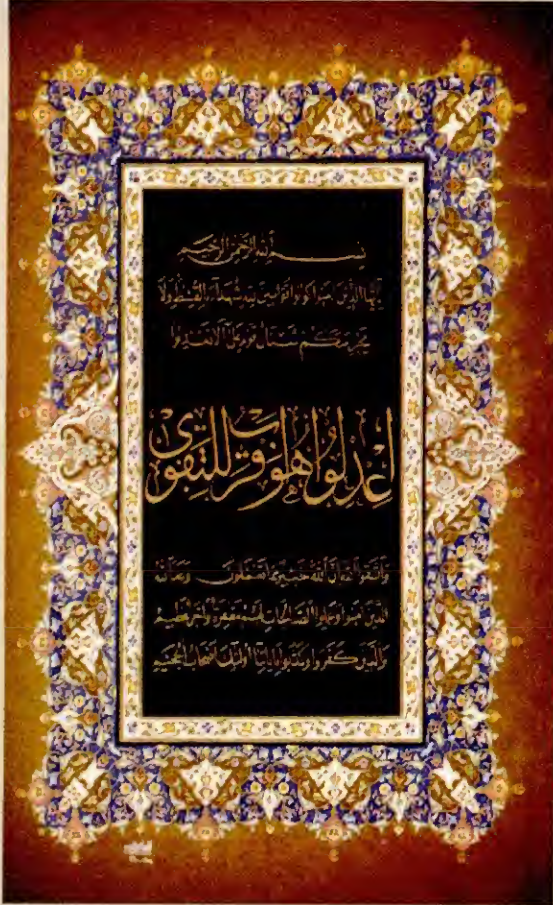 بسم الله الرحمن الرحيم
يا أيها الذين آمنوا كونوا قوامين لله شهداء بالقسط ولا
يجرمنكم شنآن قوم على ألا تعدلوا
اعدلوا هو أقرب للتقوى
واتقوا الله إن الله خبير بما تعملون وعد الله
الذين آمنوا وعملوا الصالحات لهم مغفرة وأجر عظيم
والذين كفروا وكذبوا بآياتنا أولئك أصحاب الجحيم